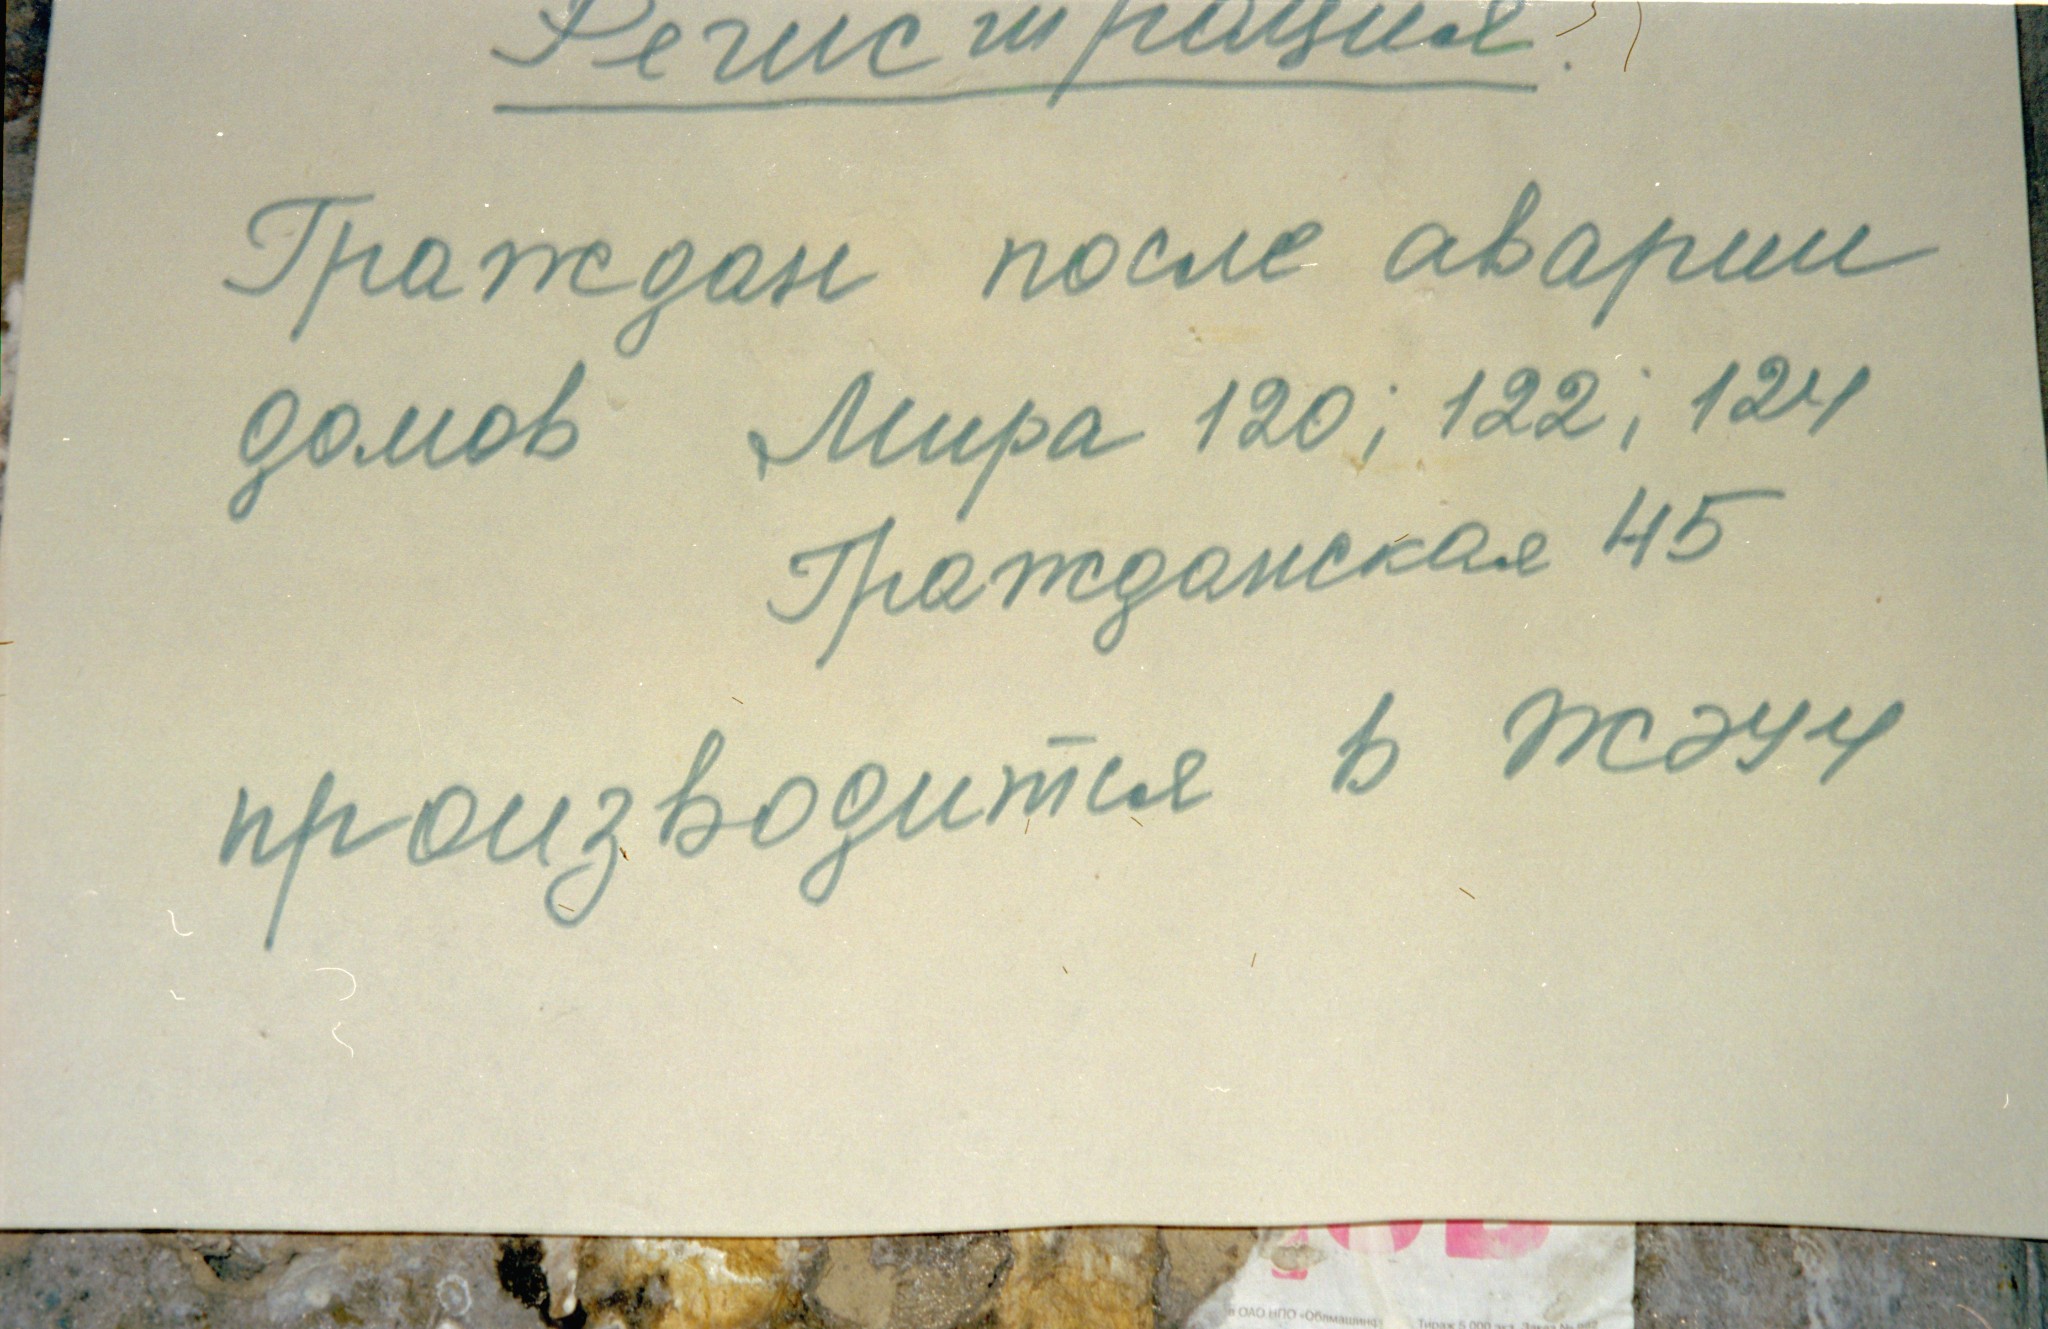 Регистрация
Граждан после аварии
домов Мира 120; 122; 124
Гражданская 45
производится в ЖЭУ4
ОВ
ОАО НПО «Облмашинф»
Тираж 5 000 экз. Заказ №